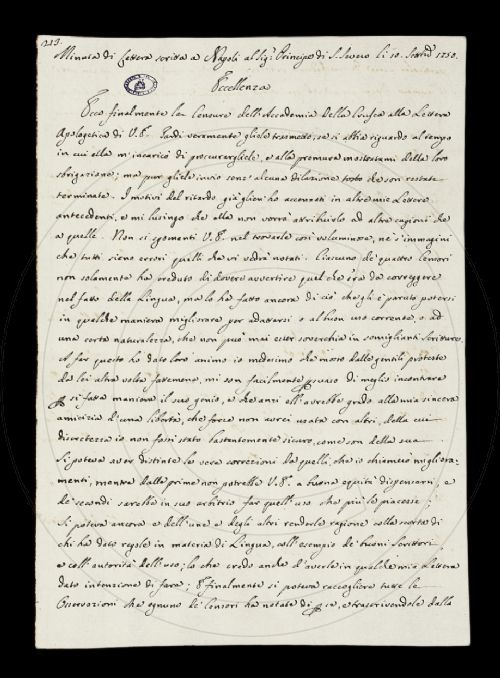 213.
Minuta di Lettera scritta a Napoli al Sig.r Principe di S. Severo li 10. Settbr̃ 1750.
Eccellenza
Ecco finalmente le Censure dell'Accademia della Crusca alla Lettera
Apologetica di V.E. Tardi veramente gliele trasmetto, se si abbia riguardo al tempo
in cui ella m'incaricò di procurargliele, e alla premura mostratami della loro
sbrigazione; ma pur gliele invio senz'alcuna dilazione tosto che son restate
terminate. I motivi del ritardo già glien'ho accennati in altre mie Lettere
antecedenti, e mi lusingo che ella non vorrà attribuirlo ad altre cagioni che
a quelle. Non si sgomenti V.E. nel trovarle così voluminose, nè s'immagini
che tutti sieno errori quelli che vi vedrà notati. Ciascuno de' quattro Censori
non solamente ha creduto di dovere avvertire quel che v'era da correggere
nel fatto della Lingua, ma lo ha fatto ancora di ciò che gli è paruto potersi
in qualche maniera migliorare per adattarsi o al buon uso corrente, o ad
una certa naturalezza, che non può mai esser soverchia in somiglianti Scritture.
A far questo ho dato loro animo io medesimo che mosso dalle gentili proteste
da lei altra volta facemi, mi son facilmente persuaso di meglio incontrare
in sì fatta maniera il suo genio, e che anzi ell'avrebbe grado alla mia sincera
amicizia d'una libertà, che forse non avrei usata con altri, della cui
discretezza io non fossi stato bastantemente sicuro, come son della sua.
Si poteva aver distinte le vere correzioni da quelle, che io chiamerò miglioramenti,
mentre dalle prime non potrebbe V.E. a buona equità dispensarsi, e
de' secondi sarebbe in suo arbitrio far quell'uso che più le piacesse;
Si poteva ancora e dell'une e degli altri renderle ragione colla scorta di
chi ha dato regole in materia di Lingua, coll'esempio de' buoni Scrittori
e coll'autorità dell'uso; lo che credo anche d'averle in qualche mia Lettera
dato intenzione di fare; E finalmente si poteva raccogliere tutte le
Osservazioni che ognuno de' Censori ha notate di per se, e trascrivendole dalla